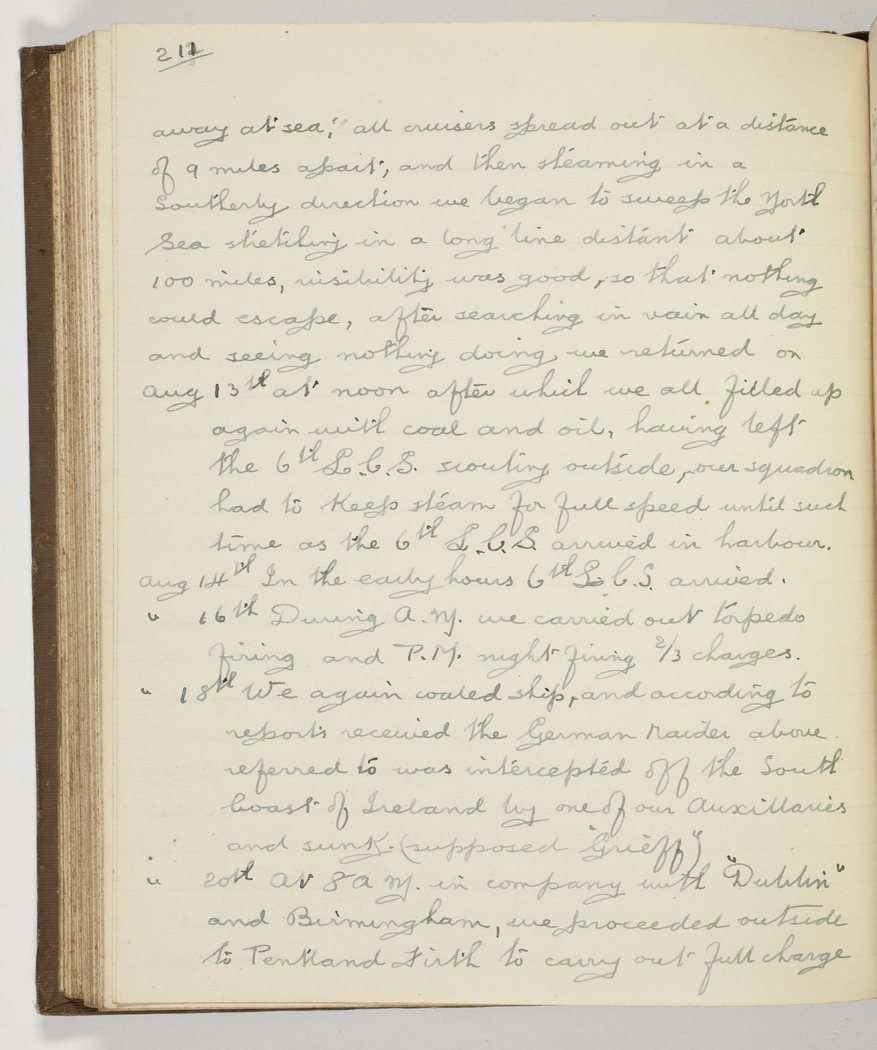 211
away at sea," all cruisers spread out at a distance
of 9 miles apart, and then steaming in a
Southerly direction we began to sweep the North
Sea stretching in a long line distant about
100 miles, visibility was good, so that nothing
could escape, after searching in vain all day
and seeing nothing doing we returned on
Aug 13th at noon after which we all filled up
again with coal and oil, having left
the 6th L.C.S. scouting outside, our squadron
had to keep steam for full speed until such
time as the 6th L.C.S. arrived in harbour.
Aug 14th In the early hours 6th L.C.S. arrived.
" 16th During A.M. we carried out torpedo
firing and P.M. night firing 2/3 charges.
" 18th We again coaled ship, and according to
reports received the German Raider above
referred to was intercepted off the South
Coast of Ireland by one of our Auxillaries
and sunk. (supposed "Grieff")
" 20th At 8 A.M. in company with "Dublin"
and Birmingham, we proceeded outside
to Pentland Firth to carry out full charge